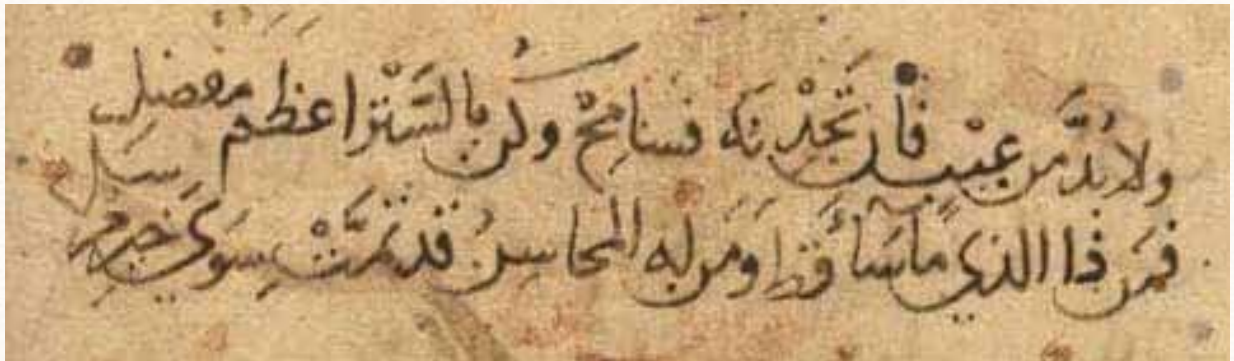 ولا بُدَّ من عَيْبٍ فَأن تَجِدْنَه فسامِحْ وكُن بالسَّتْرِ اعظَم مفضِلِ
فمَن ذا الذي مَا سَآ قَط وَمَن لَه المحاسِنُ قد تمَّتْ سِوَي خير مرسَل